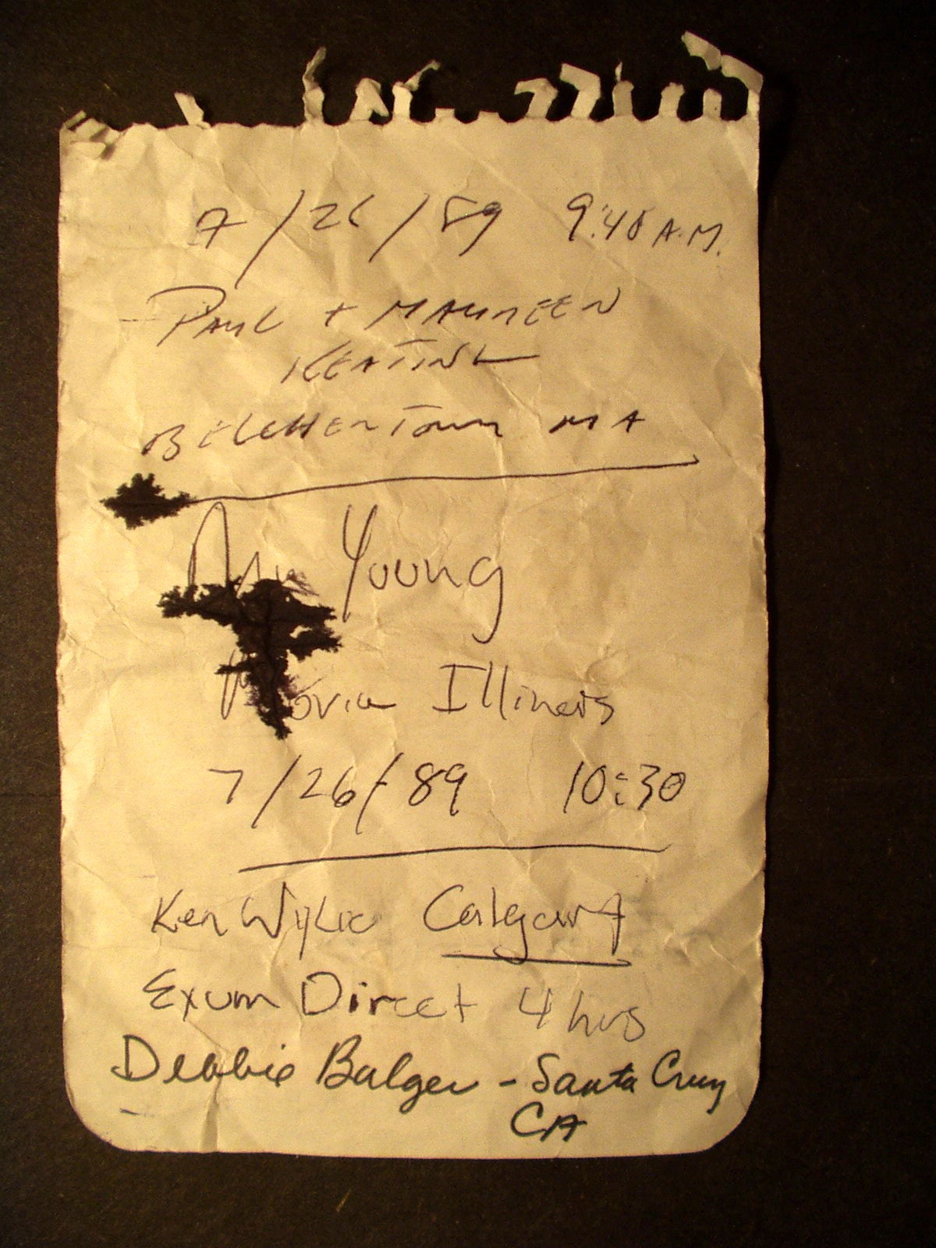 7/26/89 9:40 A.M.
PAUL + MAUREEN
KEATING
BELCHERTOWN MA
Young
Illinois
7/26/89 10:30
Ken Wylie Calgary
Exum Direct 4 hrs
Debbie Bulger - Santa Cruz
CA